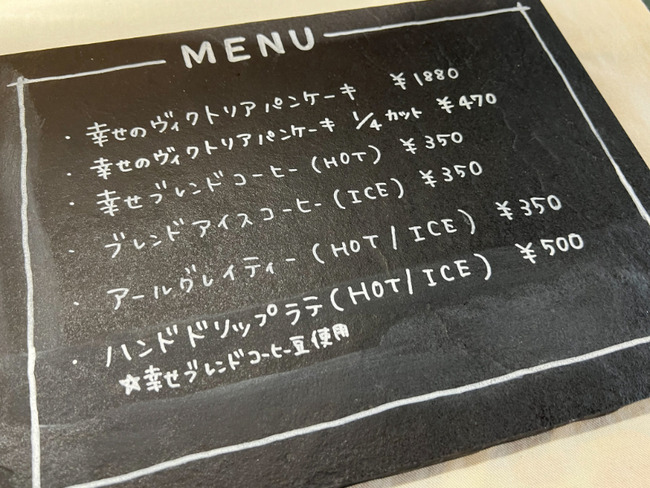 MENU
・幸せのヴィクトリアパンケーキ ¥1880
・幸せのヴィクトリアパンケーキ 1/4カット ¥470
・幸せブレンドコーヒー(HOT) ¥350
・ブレンドアイスコーヒー(ICE) ¥350
・アールグレイティー(HOT/ICE) ¥350
・ハンドドリップラテ(HOT/ICE) ¥500
☆幸せブレンドコーヒー豆使用